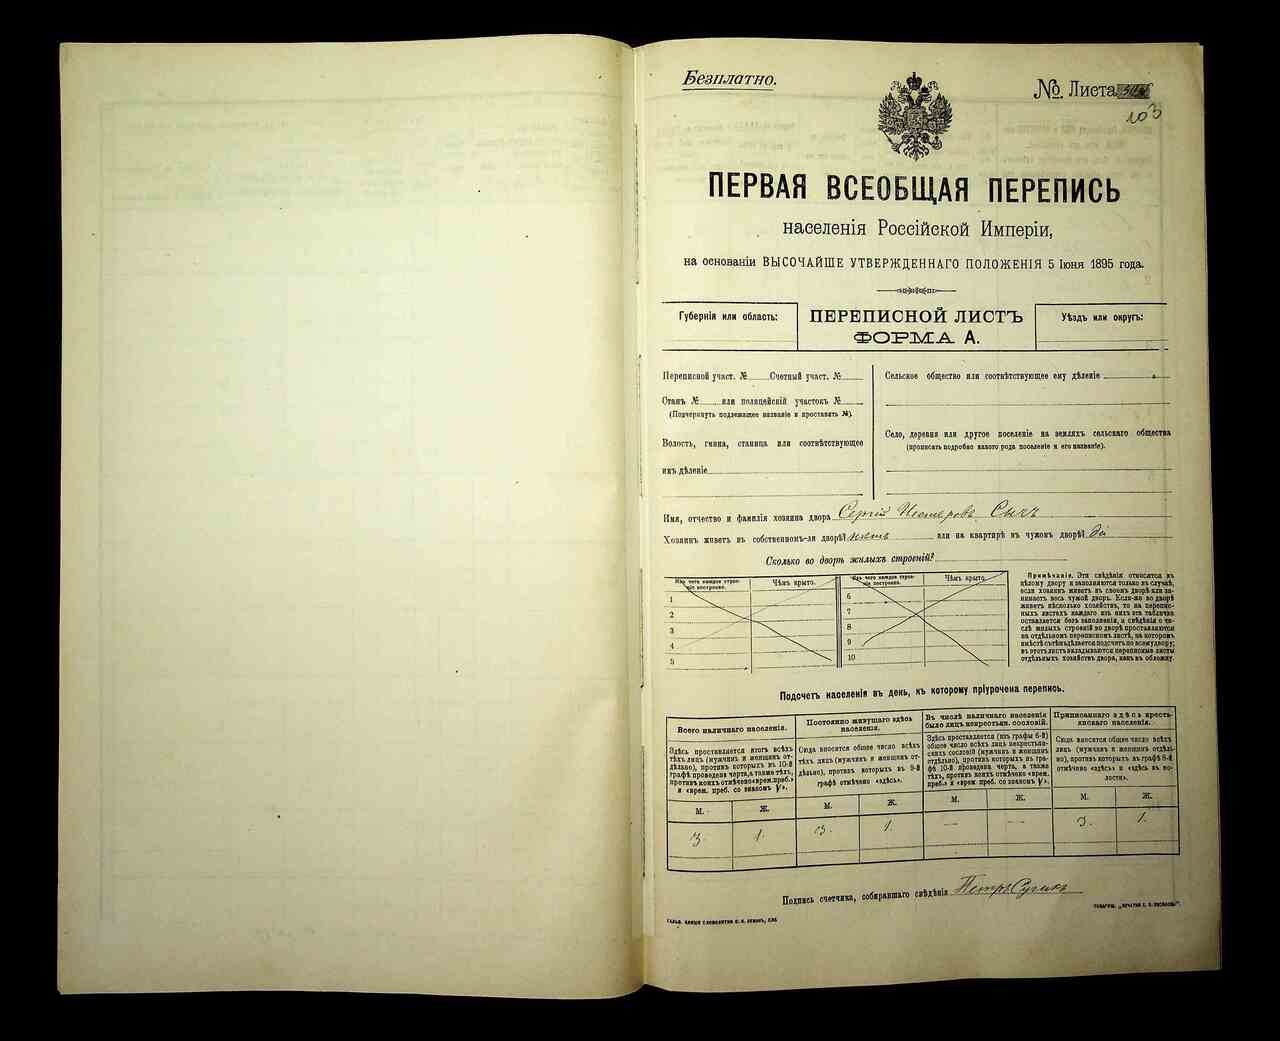 Безплатно.
№. Листа
103
ПЕРВАЯ ВСЕОБЩАЯ ПЕРЕПИСЬ
населенія Россійской Имперіи,
на основаніи ВЫСОЧАЙШЕ УТВЕРЖДЕННАГО ПОЛОЖЕНІЯ 5 Іюня 1895 года.
Губернія или область:
ПЕРЕПИСНОЙ ЛИСТЪ
ФОРМА А.
Уѣздъ или округъ:
Переписной участ. № Счетный участ. №
Станъ № или полицейскій участокъ №
(Подчеркнуть подлежащее названіе и проставить №).
Волость, гмина, станица или соотвѣтствующее
имъ дѣленіе
Сельское общество или соотвѣтствующее ему дѣленіе
Село, деревня или другое поселеніе на земляхъ сельскаго общества
(прописать подробно какого рода поселеніе и его названіе).
Имя, отчество и фамилія хозяина двора Сергій Нестеровъ Сычъ
Хозяинъ живетъ въ собственномъ-ли дворѣ? нѣтъ или на квартирѣ въ чужомъ дворѣ? да
Сколько во дворѣ жилыхъ строеній?
Изъ чего каждое строе-
ніе построено.
Чѣмъ крыто.
Изъ чего каждое строе-
ніе построено.
Чѣмъ крыто.
1
2
3
4
5
6
7
8
9
10
Примѣчаніе. Эти свѣдѣнія относятся къ
цѣлому двору и заполняются только въ случаѣ,
если хозяинъ живетъ въ своемъ дворѣ или за-
нимаетъ весь чужой дворъ. Если-же во дворѣ
живетъ нѣсколько хозяйствъ, то на перепис-
ныхъ листахъ каждаго изъ нихъ эта табличка
оставляется безъ заполненія, а свѣдѣнія о чи-
слѣ жилыхъ строеній во дворѣ проставляются
на отдѣльномъ переписномъ листѣ, на которомъ
вмѣстѣ съ тѣмъ дѣлается подсчетъ по всему двору;
въ этотъ листъ вкладываются переписные листы
отдѣльныхъ хозяйствъ двора, какъ въ обложку.
Подсчетъ населенія въ день, къ которому пріурочена перепись.
Всего наличнаго населенія.
Здѣсь проставляется итогъ всѣхъ
тѣхъ лицъ (мужчинъ и женщинъ от-
дѣльно), противъ которыхъ въ 10-й
графѣ проведена черта, а также тѣхъ,
противъ коихъ отмѣчено «врем. преб.»
и «врем. преб. со знакомъ V».
Постоянно живущаго здѣсь
населенія.
Сюда вносится общее число всѣхъ
тѣхъ лицъ (мужчинъ и женщинъ от-
дѣльно), противъ которыхъ въ 9-й
графѣ отмѣчено «здѣсь».
Въ числѣ наличнаго населенія
было лицъ некрестьян. сословій.
Здѣсь проставляется (изъ графы 6-й)
общее число всѣхъ лицъ некрестьян-
скихъ сословій (мужчинъ и женщинъ
отдѣльно), противъ которыхъ въ гра-
фѣ 10-й проведена черта, а также
тѣхъ, противъ коихъ отмѣчено «врем.
преб.» и «врем. преб. со знакомъ V».
Приписаннаго здѣсь кресть-
янскаго населенія.
Сюда вносится общее число всѣхъ
лицъ (мужчинъ и женщинъ отдѣль-
но), противъ которыхъ въ графѣ 8-й
отмѣчено «здѣсь» и «здѣсь въ во-
лости».
М. Ж. М. Ж. М. Ж. М. Ж.
3. 1. 3. 1. — — 3. 1.
Подпись счетчика, собиравшаго свѣдѣнія Петръ